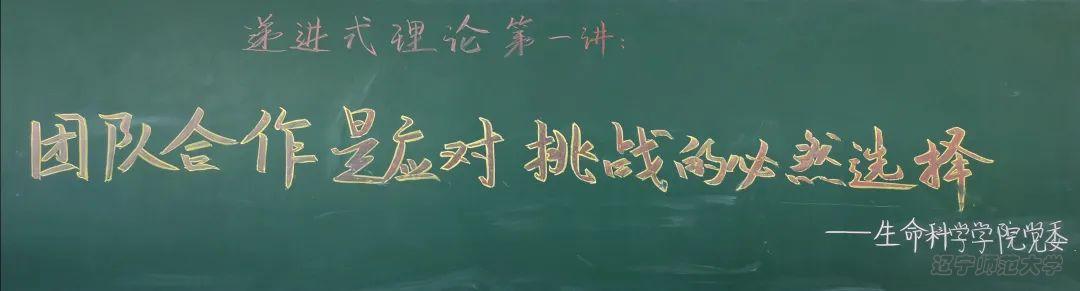 递进式理论第一讲：
团队合作是应对挑战的必然选择
——生命科学学院党委
辽宁师范大学